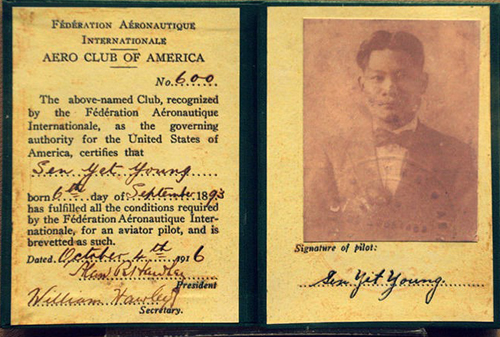 FÉDÉRATION AÉRONAUTIQUE
INTERNATIONALE
AERO CLUB OF AMERICA
No. 600
The above-named Club, recognized
by the Fédération Aéronautique
Internationale, as the governing
authority for the United States of
America, certifies that
Sen Yet Young
born 6th day of September 1893
has fulfilled all the conditions required
by the Fédération Aéronautique Inter-
nationale, for an aviator pilot, and is
brevetted as such.
Dated October 4th 1916
Alan R Hawley
President
William Hawley
Secretary.
Signature of pilot:
Sen Yet Young